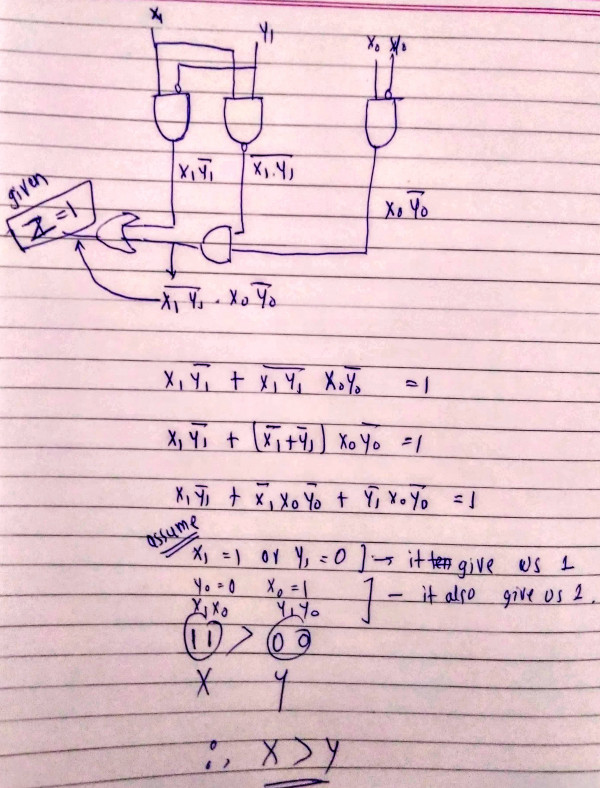 X₁
Y₁
X₀ Y₀
X₁Y̅₁
X̅₁.̅Y̅₁̅
X₀ Y̅₀
given
Z=1
X̅₁̅ ̅Y̅₁̅ . X₀ Y̅₀
X₁ Y̅₁ + X̅₁̅ ̅Y̅₁̅ X₀Y̅₀ = 1
X₁ Y̅₁ + (X̅₁+Y̅₁) X₀Y̅₀ = 1
X₁Y̅₁ + X̅₁X₀Y̅₀ + Y̅₁ X₀Y̅₀ = 1
assume
X₁ = 1 or Y₁ = 0 ] → it give us 1
Y₀ = 0 X₀ = 1 ] – it also give us 1.
X₁X₀ Y₁Y₀
11 > 00
X Y
∴, X > Y